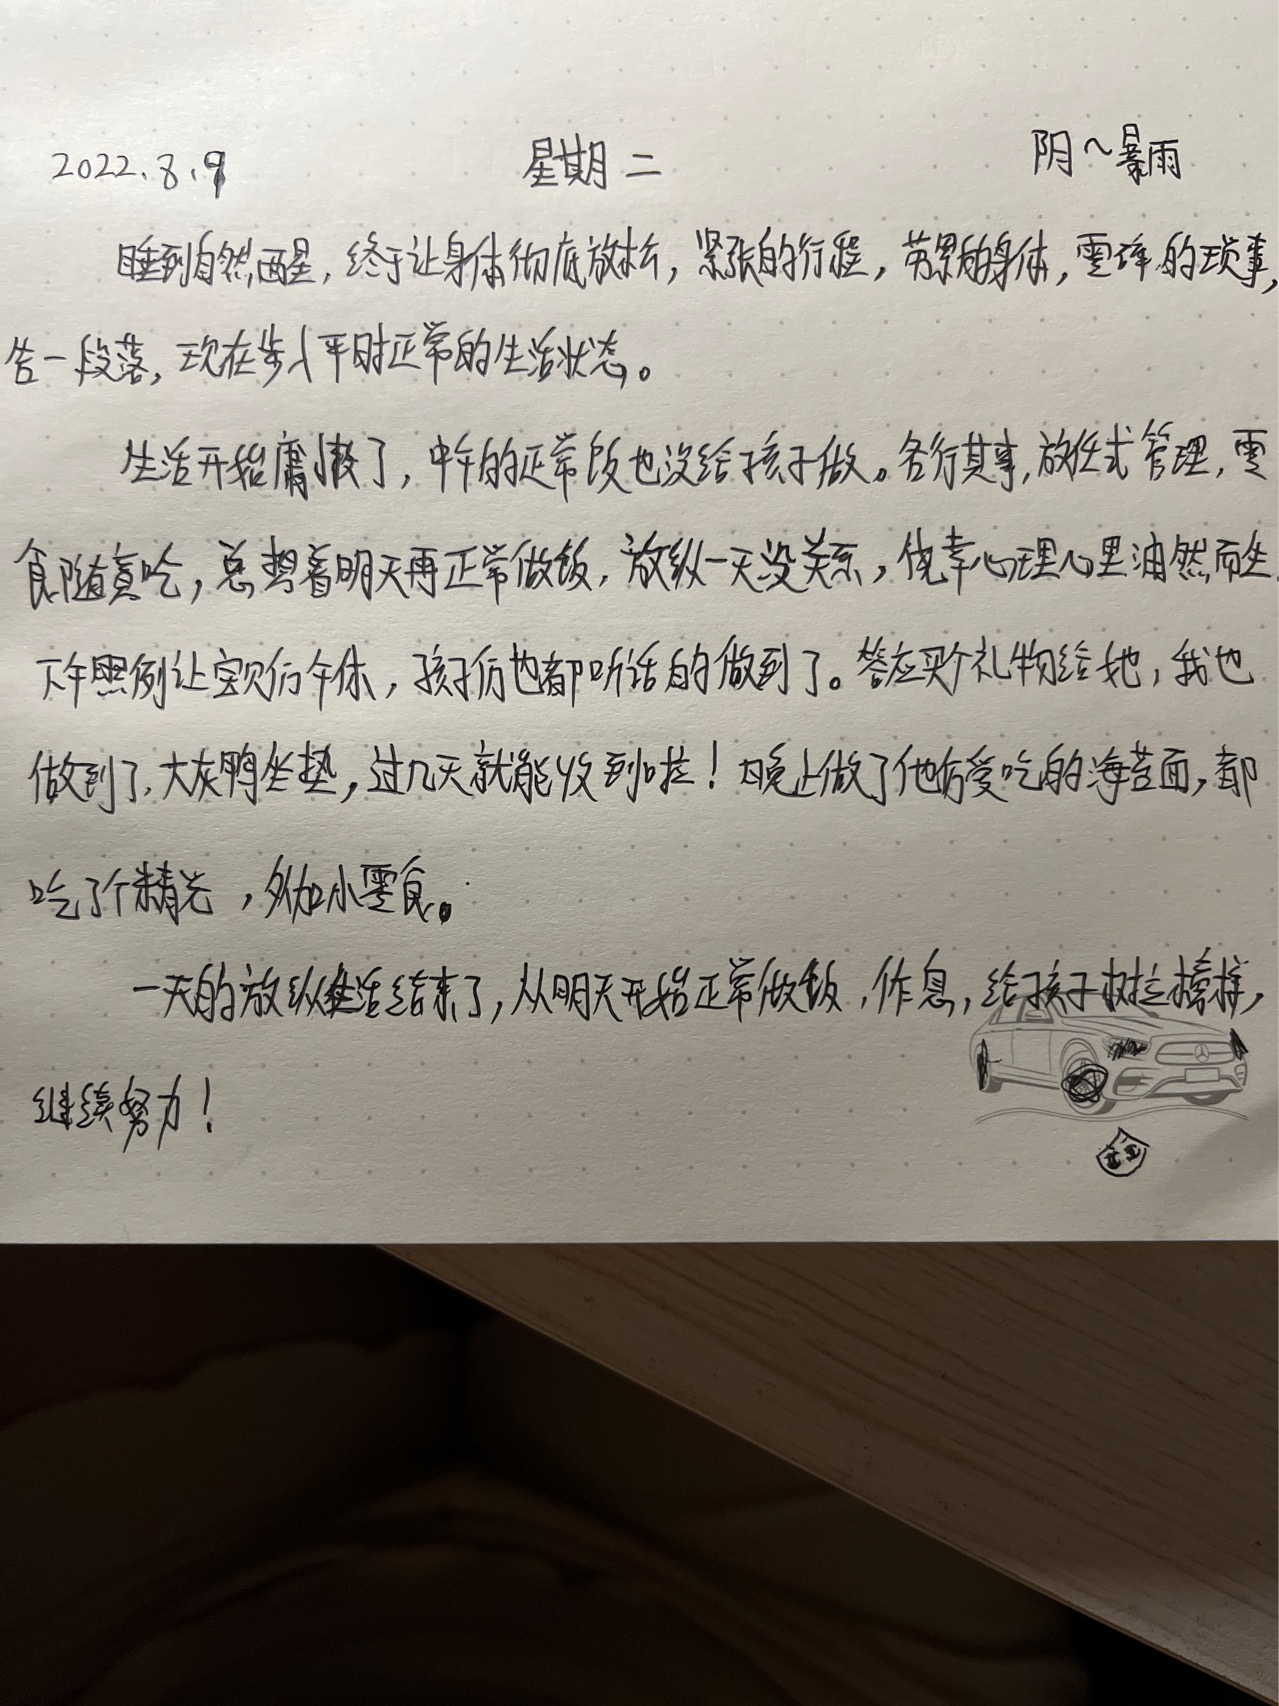 2022.8.9 星期二 阴～暴雨
睡到自然醒，终于让身体彻底放松，紧张的行程，劳累的身体，零碎的琐事，
告一段落，现在步入平时正常的生活状态。
生活开始慵懒了，中午的正常饭也没给孩子做。各行其事，放任式管理，零
食随意吃，总想着明天再正常做饭，放纵一天没关系，侥幸心理心里油然而生.
下午照例让宝贝们午休，孩子们也都听话的做到了。答应买个礼物给她，我也
做到了，大灰鸭坐垫，过几天就能收到啦！晚上做了他们爱吃的海苔面，都
吃了个精光，外加小零食。
一天的放纵生活结束了，从明天开始正常做饭，作息，给孩子树立榜样，
继续努力！